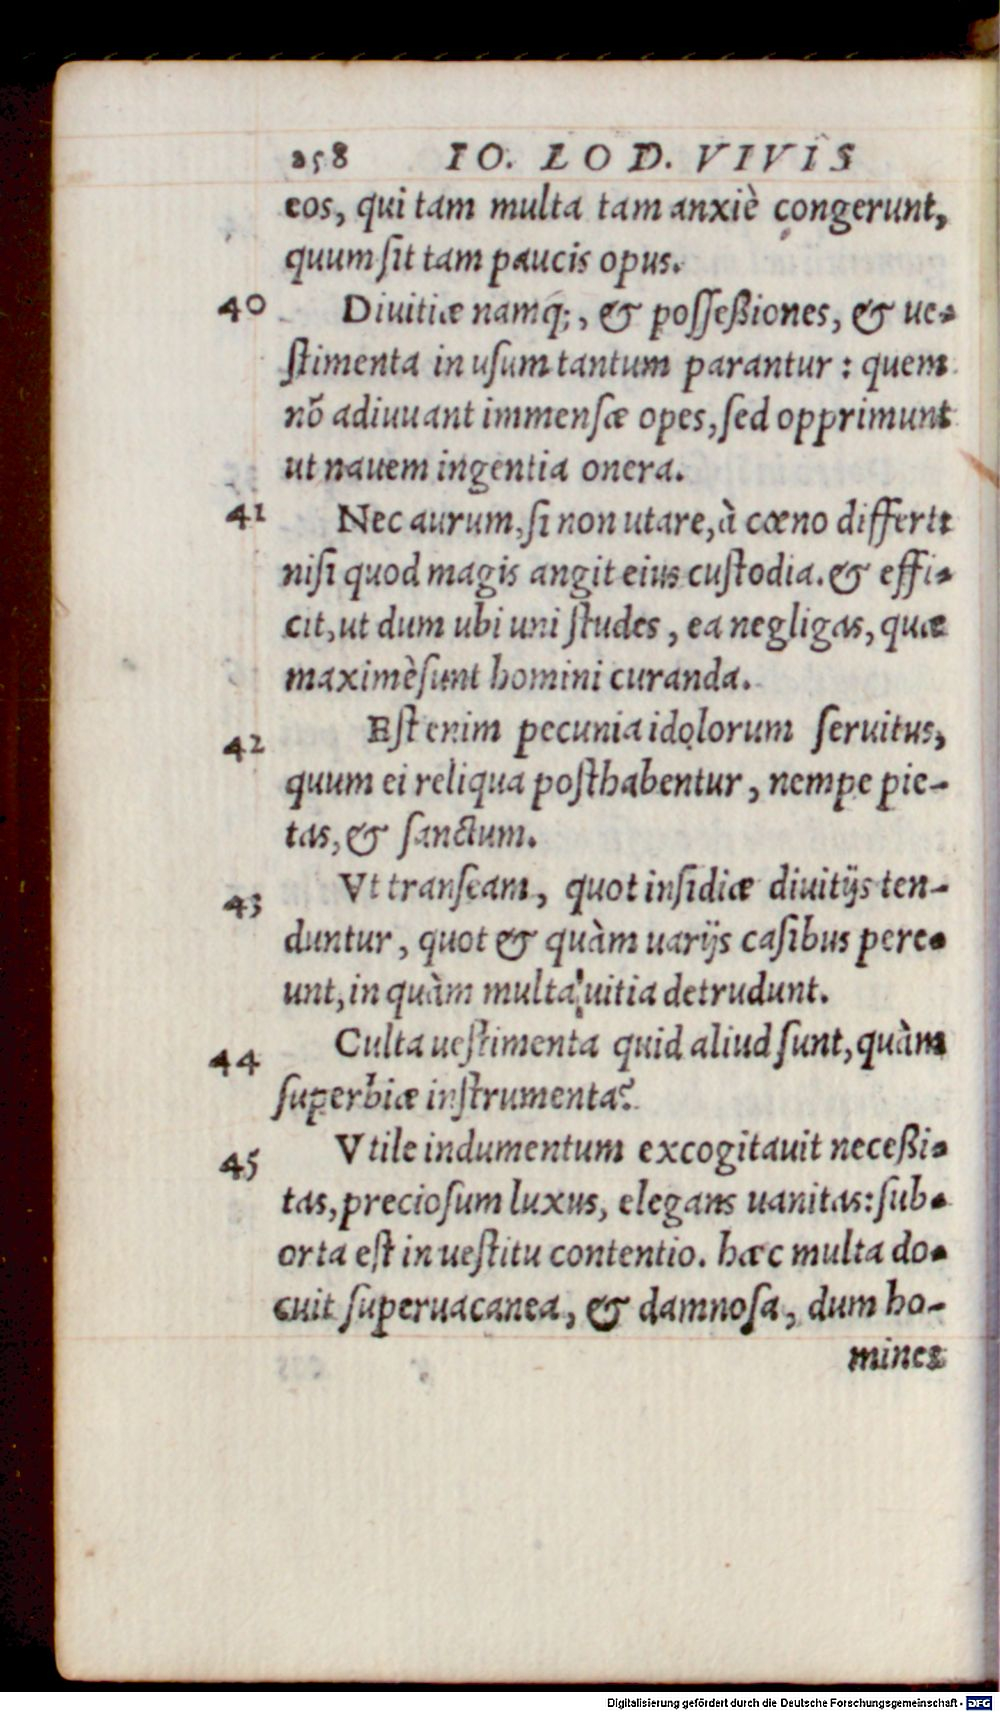 258 IO. LOD. VIVIS
eos, qui tam multa tam anxiè congerunt,
quum ſit tam paucis opus.
40 Diuitiæ namq;, & poſſeßiones, & ue-
ſtimenta in uſum tantum parantur : quem
nō adiuuant immenſæ opes, ſed opprimunt
ut nauem ingentia onera.
41 Nec aurum, ſi non utare, à cœno differt:
niſi quod magis angit eius cuſtodia. & effi-
cit, ut dum ubi uni ſtudes, ea negligas, quæ
maximè ſunt homini curanda.
42 Eſt enim pecunia idolorum ſeruitus,
quum ei reliqua poſthabentur, nempe pie-
tas, & ſanctum.
43 Vt tranſeam, quot inſidiæ diuitijs ten-
duntur, quot & quàm uarijs caſibus pere-
unt, in quàm multa uitia detrudunt.
44 Culta ueſtimenta quid aliud ſunt, quàm
ſuperbiæ inſtrumenta?
45 Vtile indumentum excogitauit neceßi-
tas, precioſum luxus, elegans uanitas: ſub-
orta eſt in ueſtitu contentio. hæc multa do-
cuit ſuperuacanea, & damnoſa, dum ho-
mines
Digitalisierung gefördert durch die Deutsche Forschungsgemeinschaft - DFG